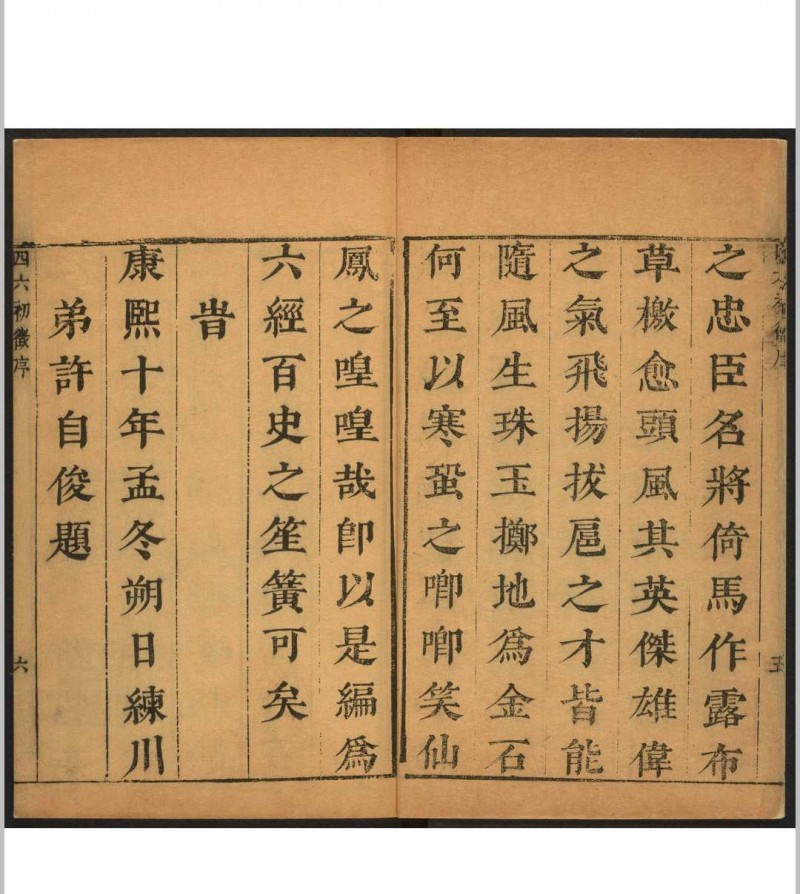 之忠臣名將倚馬作露布
草檄愈頭風其英傑雄偉
之氣飛揚拔扈之才皆能
隨風生珠玉擲地爲金石
何至以寒蛩之唧唧笑仙
鳳之喤喤哉卽以是編爲
六經百史之笙簧可矣
旹
康熙十年孟冬朔日練川
弟許自俊題
四六初徵序
六